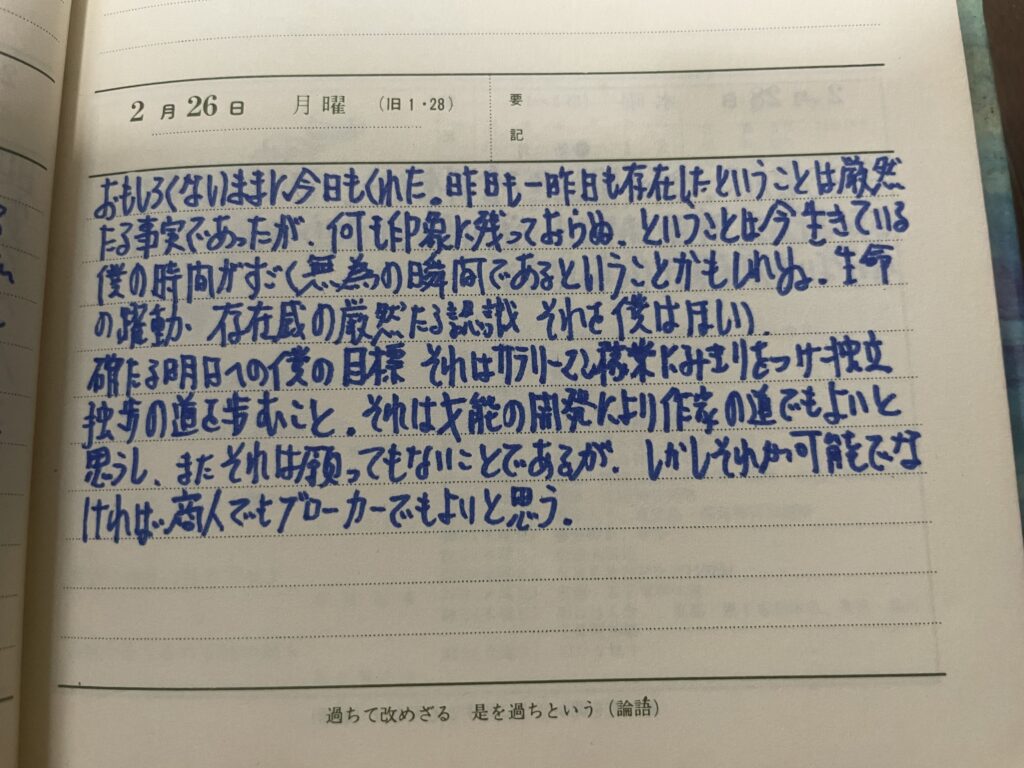 2月26日 月曜 (旧1・28) 要記
おもしろくないままに今日もくれた。昨日も一昨日も存在したということは厳然
たる事実であったが、何も印象に残っておらぬ。ということは今生きている
僕の時間がすごく無為の瞬間であるということかもしれぬ。生命
の躍動、存在感の厳然たる認識 それを僕はほしい。
確たる明日への僕の目標 それはサラリーマン稼業にみきりをつけ独立
独歩の道を歩むこと。それは才能の開発により作家の道でもよいと
思うし、またそれは願ってもないことであるが、しかしそれが可能でな
ければ商人でもブローカーでもよいと思う。
過ちて改めざる 是を過ちという(論語)